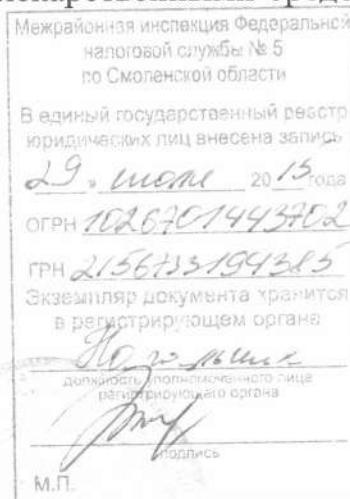 Межрайонная инспекция Федеральной
налоговой службы № 5
по Смоленской области
В единый государственный реестр
юридических лиц внесена запись
29 » июля 2015 года
ОГРН 1026701443702
ГРН 2156733194385
Экземпляр документа хранится
в регистрирующем органе
должность уполномоченного лица
регистрирующего органа
подпись
М.П.